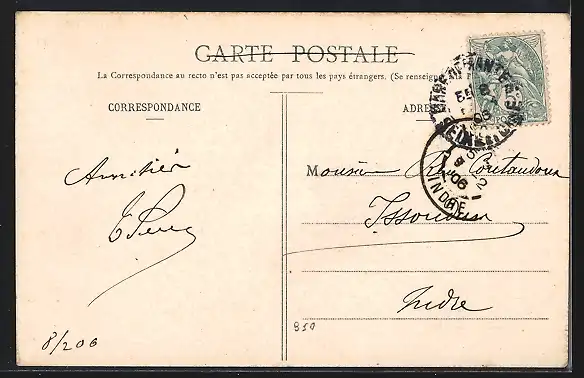 CARTE POSTALE
La Correspondance au recto n'est pas acceptée par tous les pays étrangers. (Se renseign
CORRESPONDANCE
ADRE
Amitiés
Monsieur
Issoudun
Indre
INDRE
06
850
8/206